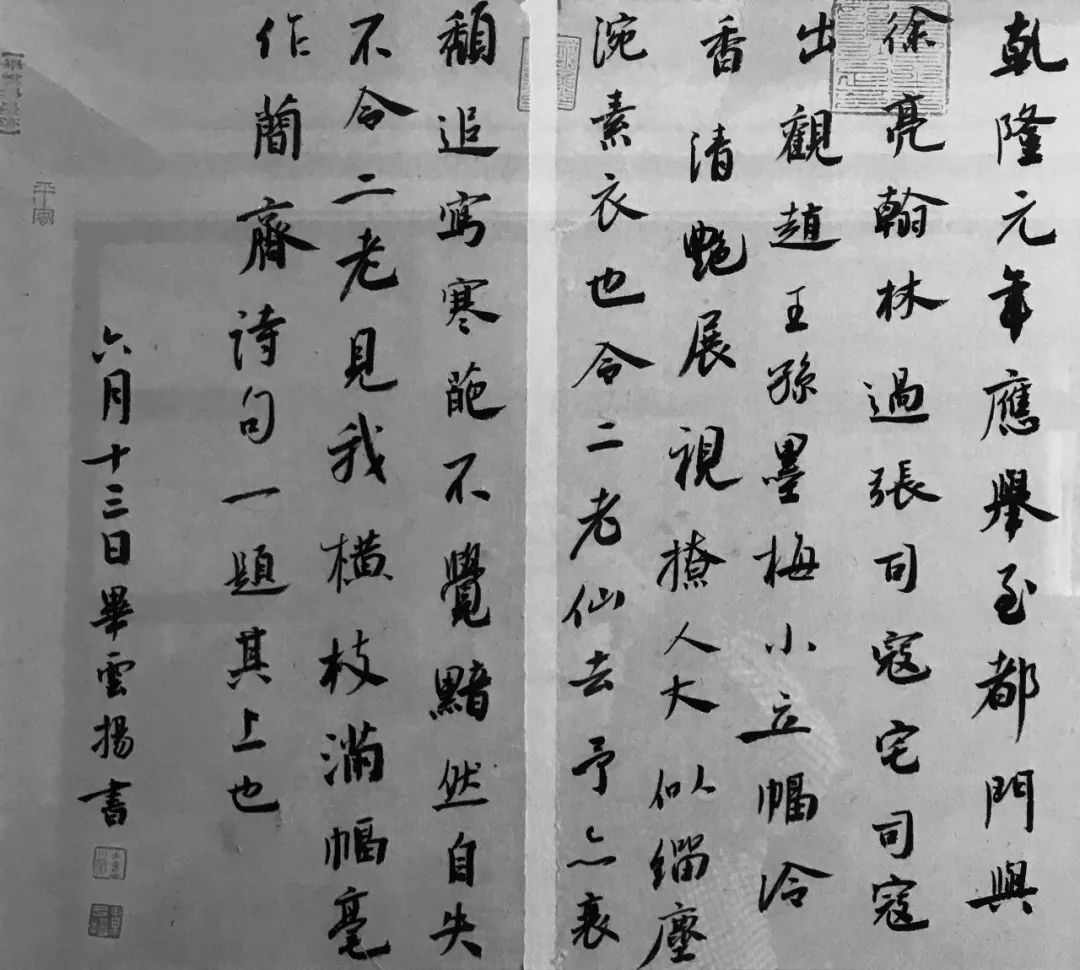 乾隆元年應舉至都門與
徐亮翰林過張司寇宅司寇
出觀趙王孫墨梅小立幅冷
香清艷展視撩人大似緇塵
涴素衣也令二老仙去予亦衰
頹追寫寒葩不覺黯然自失
不令二老見我橫枝滿幅毫
作蘭齋詩句一題其上也
六月十三日畢雲揚書